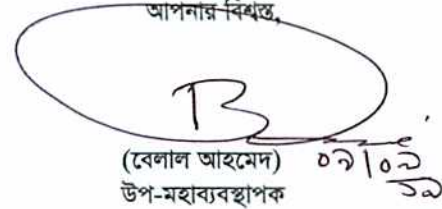 আপনার বিশ্বস্ত,
(বেলাল আহমেদ)
উপ-মহাব্যবস্থাপক